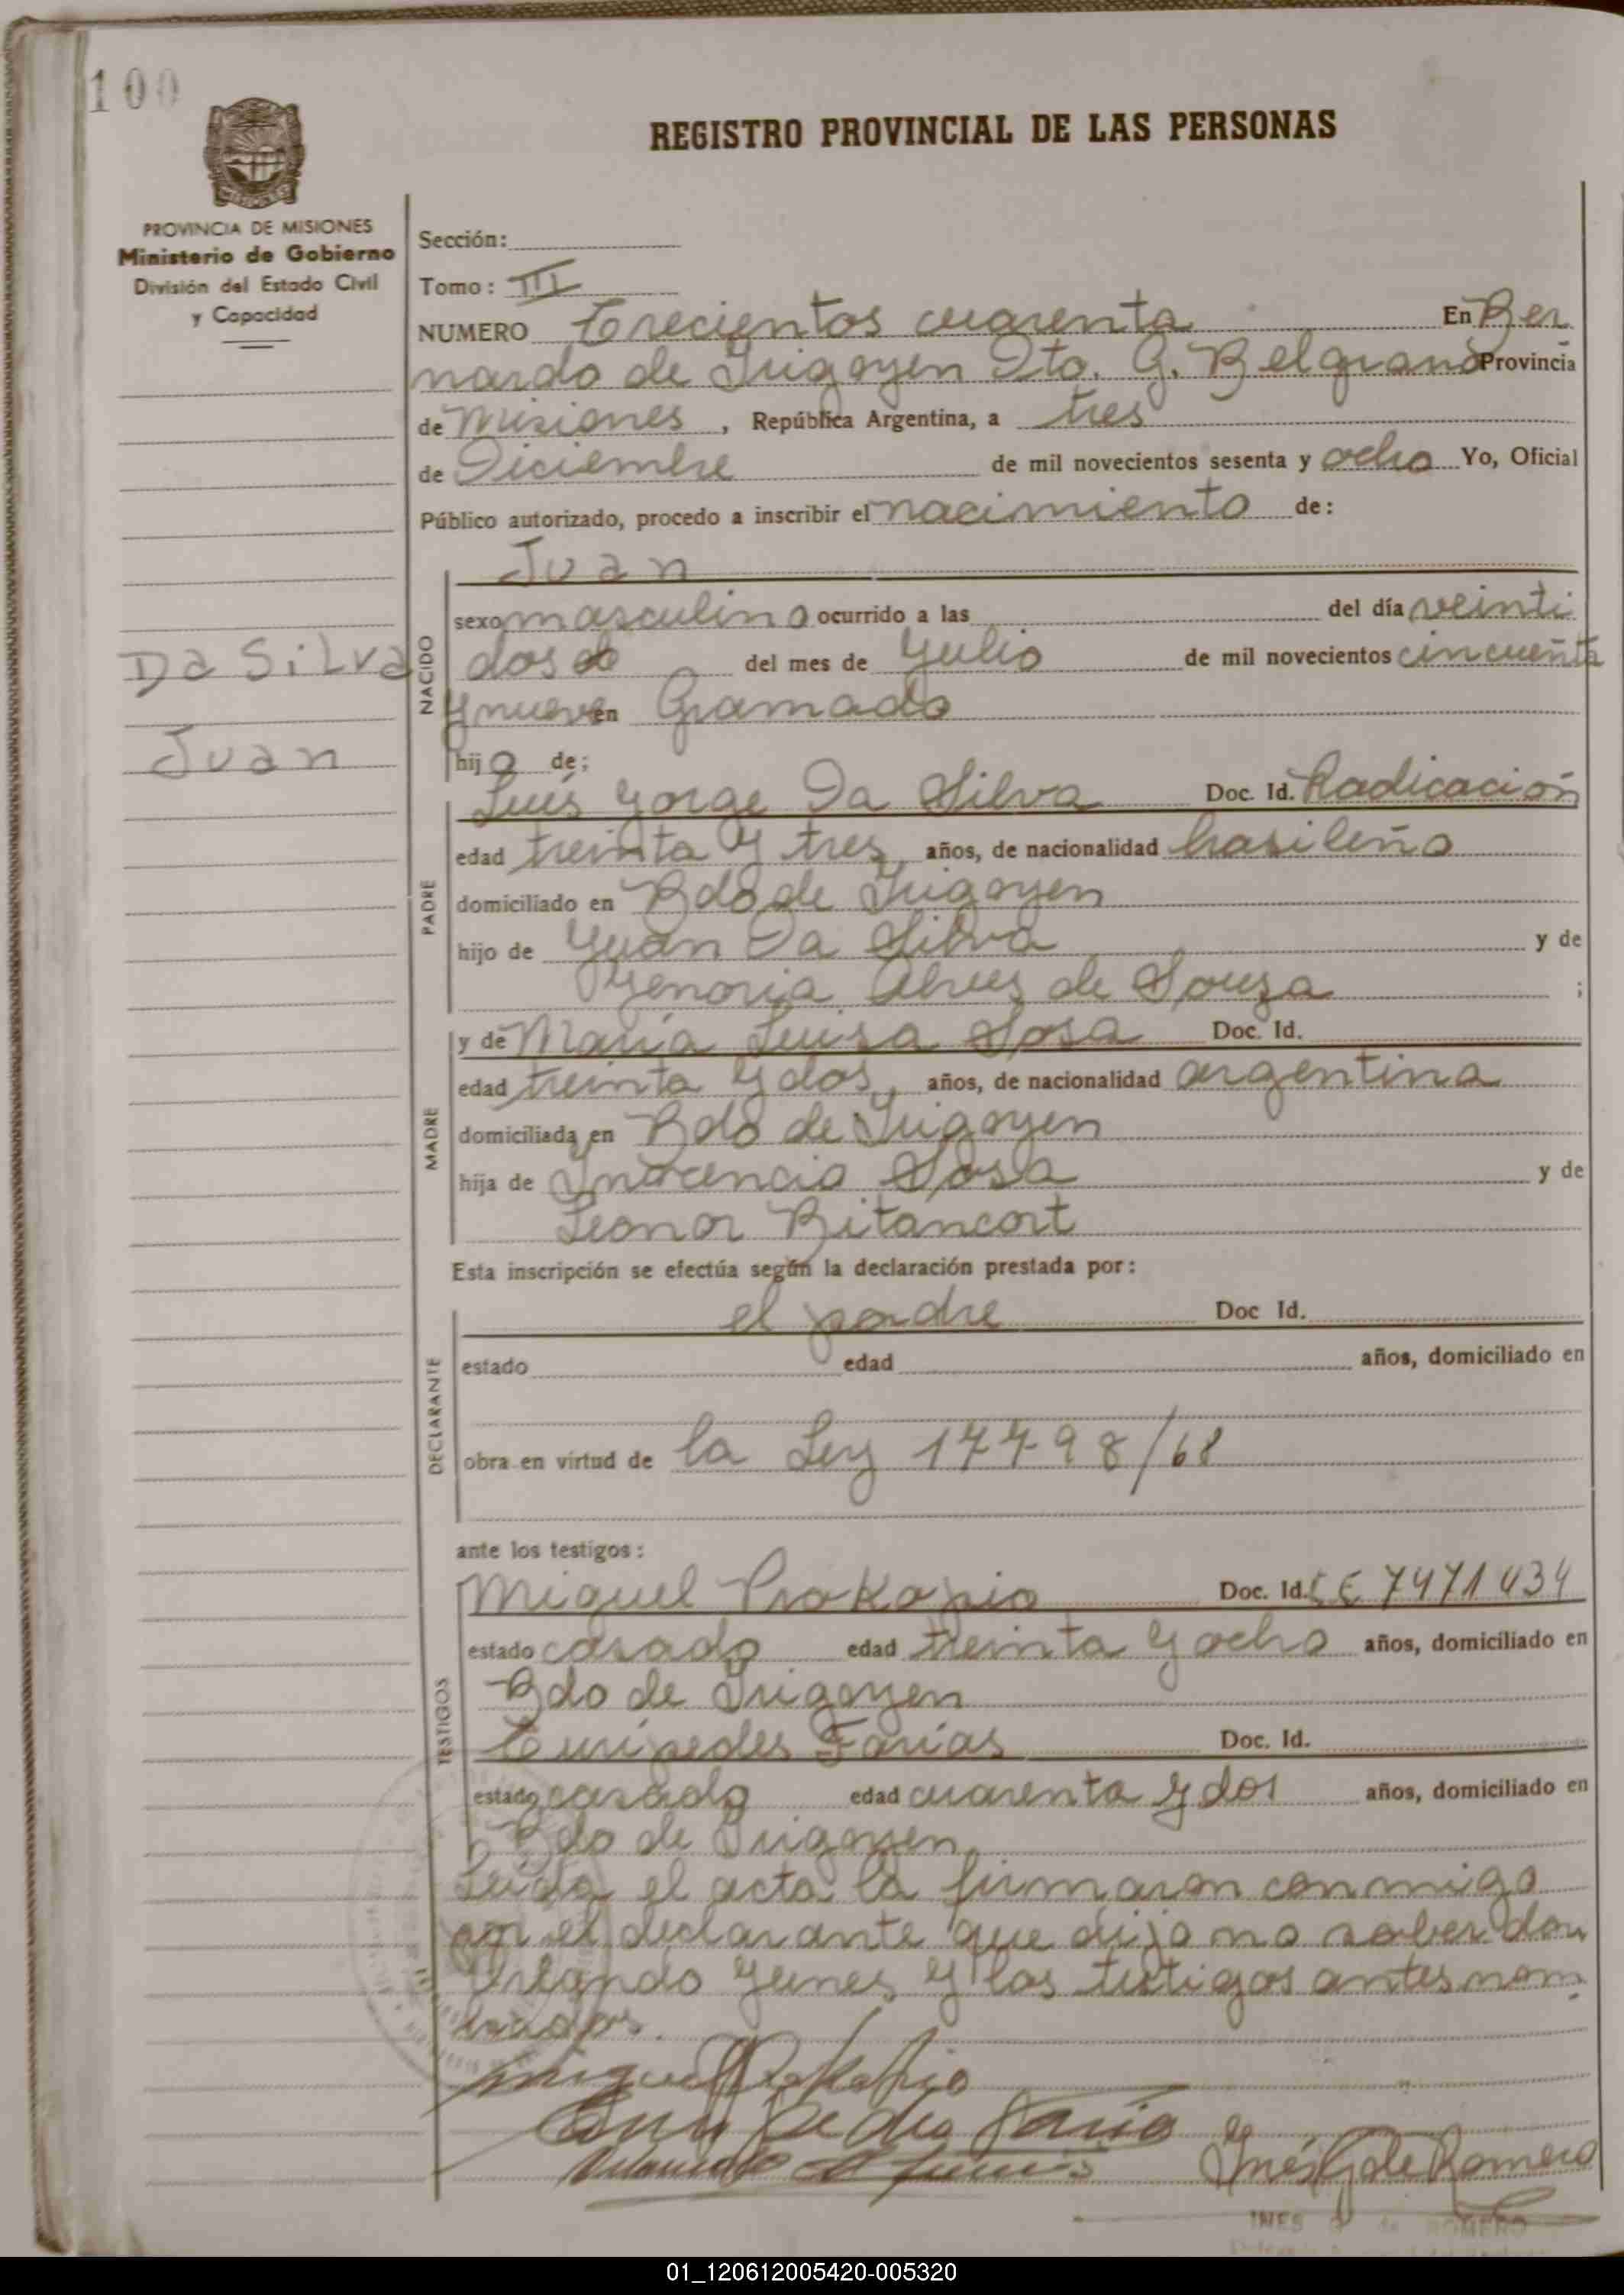 100
REGISTRO PROVINCIAL DE LAS PERSONAS
PROVINCIA DE MISIONES
Ministerio de Gobierno
División del Estado Civil
y Capacidad
Sección:
Tomo: III
NUMERO Trecientos cuarenta En Ber
nardo de Irigoyen Dto. G. Belgrano Provincia
de Misiones, República Argentina, a tres
de Diciembre de mil novecientos sesenta y ocho Yo, Oficial
Público autorizado, procedo a inscribir el nacimiento de:
Juan
sexo masculino ocurrido a las del día veinti
Da Silva
Juan
NACIDO
dos del mes de Julio de mil novecientos cincuenta
y nueve en Gramado
hijo de;
PADRE
Luis Jorge Da Silva Doc. Id. Radicación
edad treinta y tres años, de nacionalidad brasileño
domiciliado en Bdo de Irigoyen
hijo de Juan Da Silva y de
Alves de Souza ;
MADRE
y de María Luisa Sosa Doc. Id.
edad treinta y dos, años, de nacionalidad argentina
domiciliada en Bdo de Irigoyen
hija de Inocencio Sosa y de
Leonor Bitancort
Esta inscripción se efectúa según la declaración prestada por:
DECLARANTE
el padre Doc Id.
estado edad años, domiciliado en
obra en virtud de la Ley 17498/68
ante los testigos:
TESTIGOS
Miguel Prokopio Doc. Id. CE 7471434
estado casado edad treinta y ocho años, domiciliado en
Bdo de Irigoyen
Eurípedes Farías Doc. Id.
estado casado edad cuarenta y dos años, domiciliado en
Bdo de Irigoyen
Leida el acta la firmaron conmigo
por el declarante que dijo no saber don
Orlando Yunes y los testigos antes nom
brados.
Miguel Prokopio
Farias
Inés G de Romero
INES G de ROMERO
01_120612005420-005320